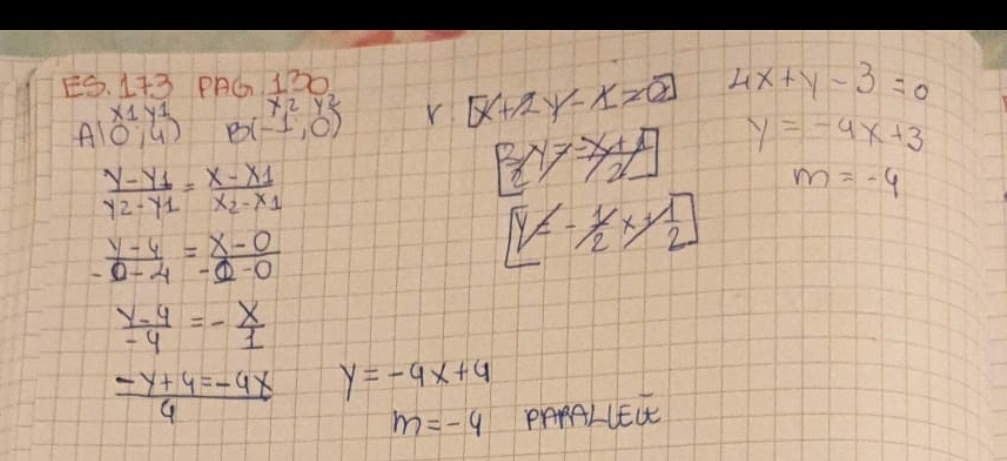 ES. 173 PAG. 130
x1 y1 x2 y2
A(0;4) B(-1;0)
y-y1/y2-y1 = x-x1/x2-x1
y-4/-0-4 = x-0/-1-0
y-4/-4 = -x/1
-y+4=-4x/4
y=-4x+4
m=-4 PARALLELE
r [x+2y-1=0]
y=-x+1/2
[y=-1/2x+1/2]
4x+y-3=0
y=-4x+3
m=-4